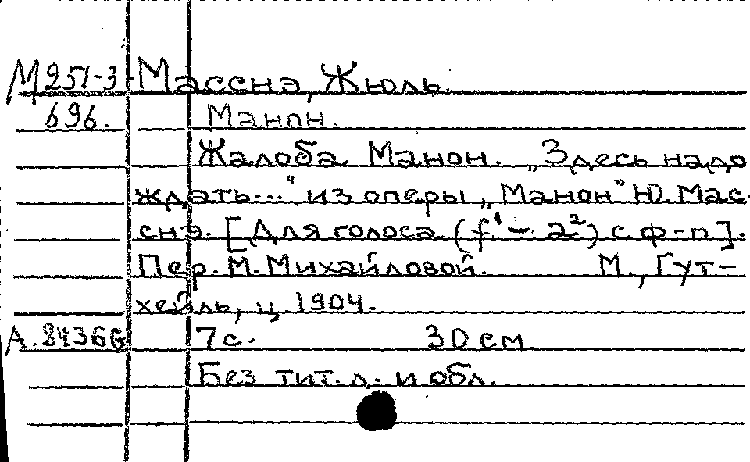 М251-3 Массна, Жюль.
696. Манон.
Жалоба Манон. „Здесь надо
ждать..." из оперы „Манон" Ю. Мас-
снэ. [Для голоса (f¹ – a²) с ф-п].
Пер. М. Михайловой. М., Гут-
хейль, ц. 1904.
А. 8436G 7 с. 30 см.
Без тит. л. и обл.